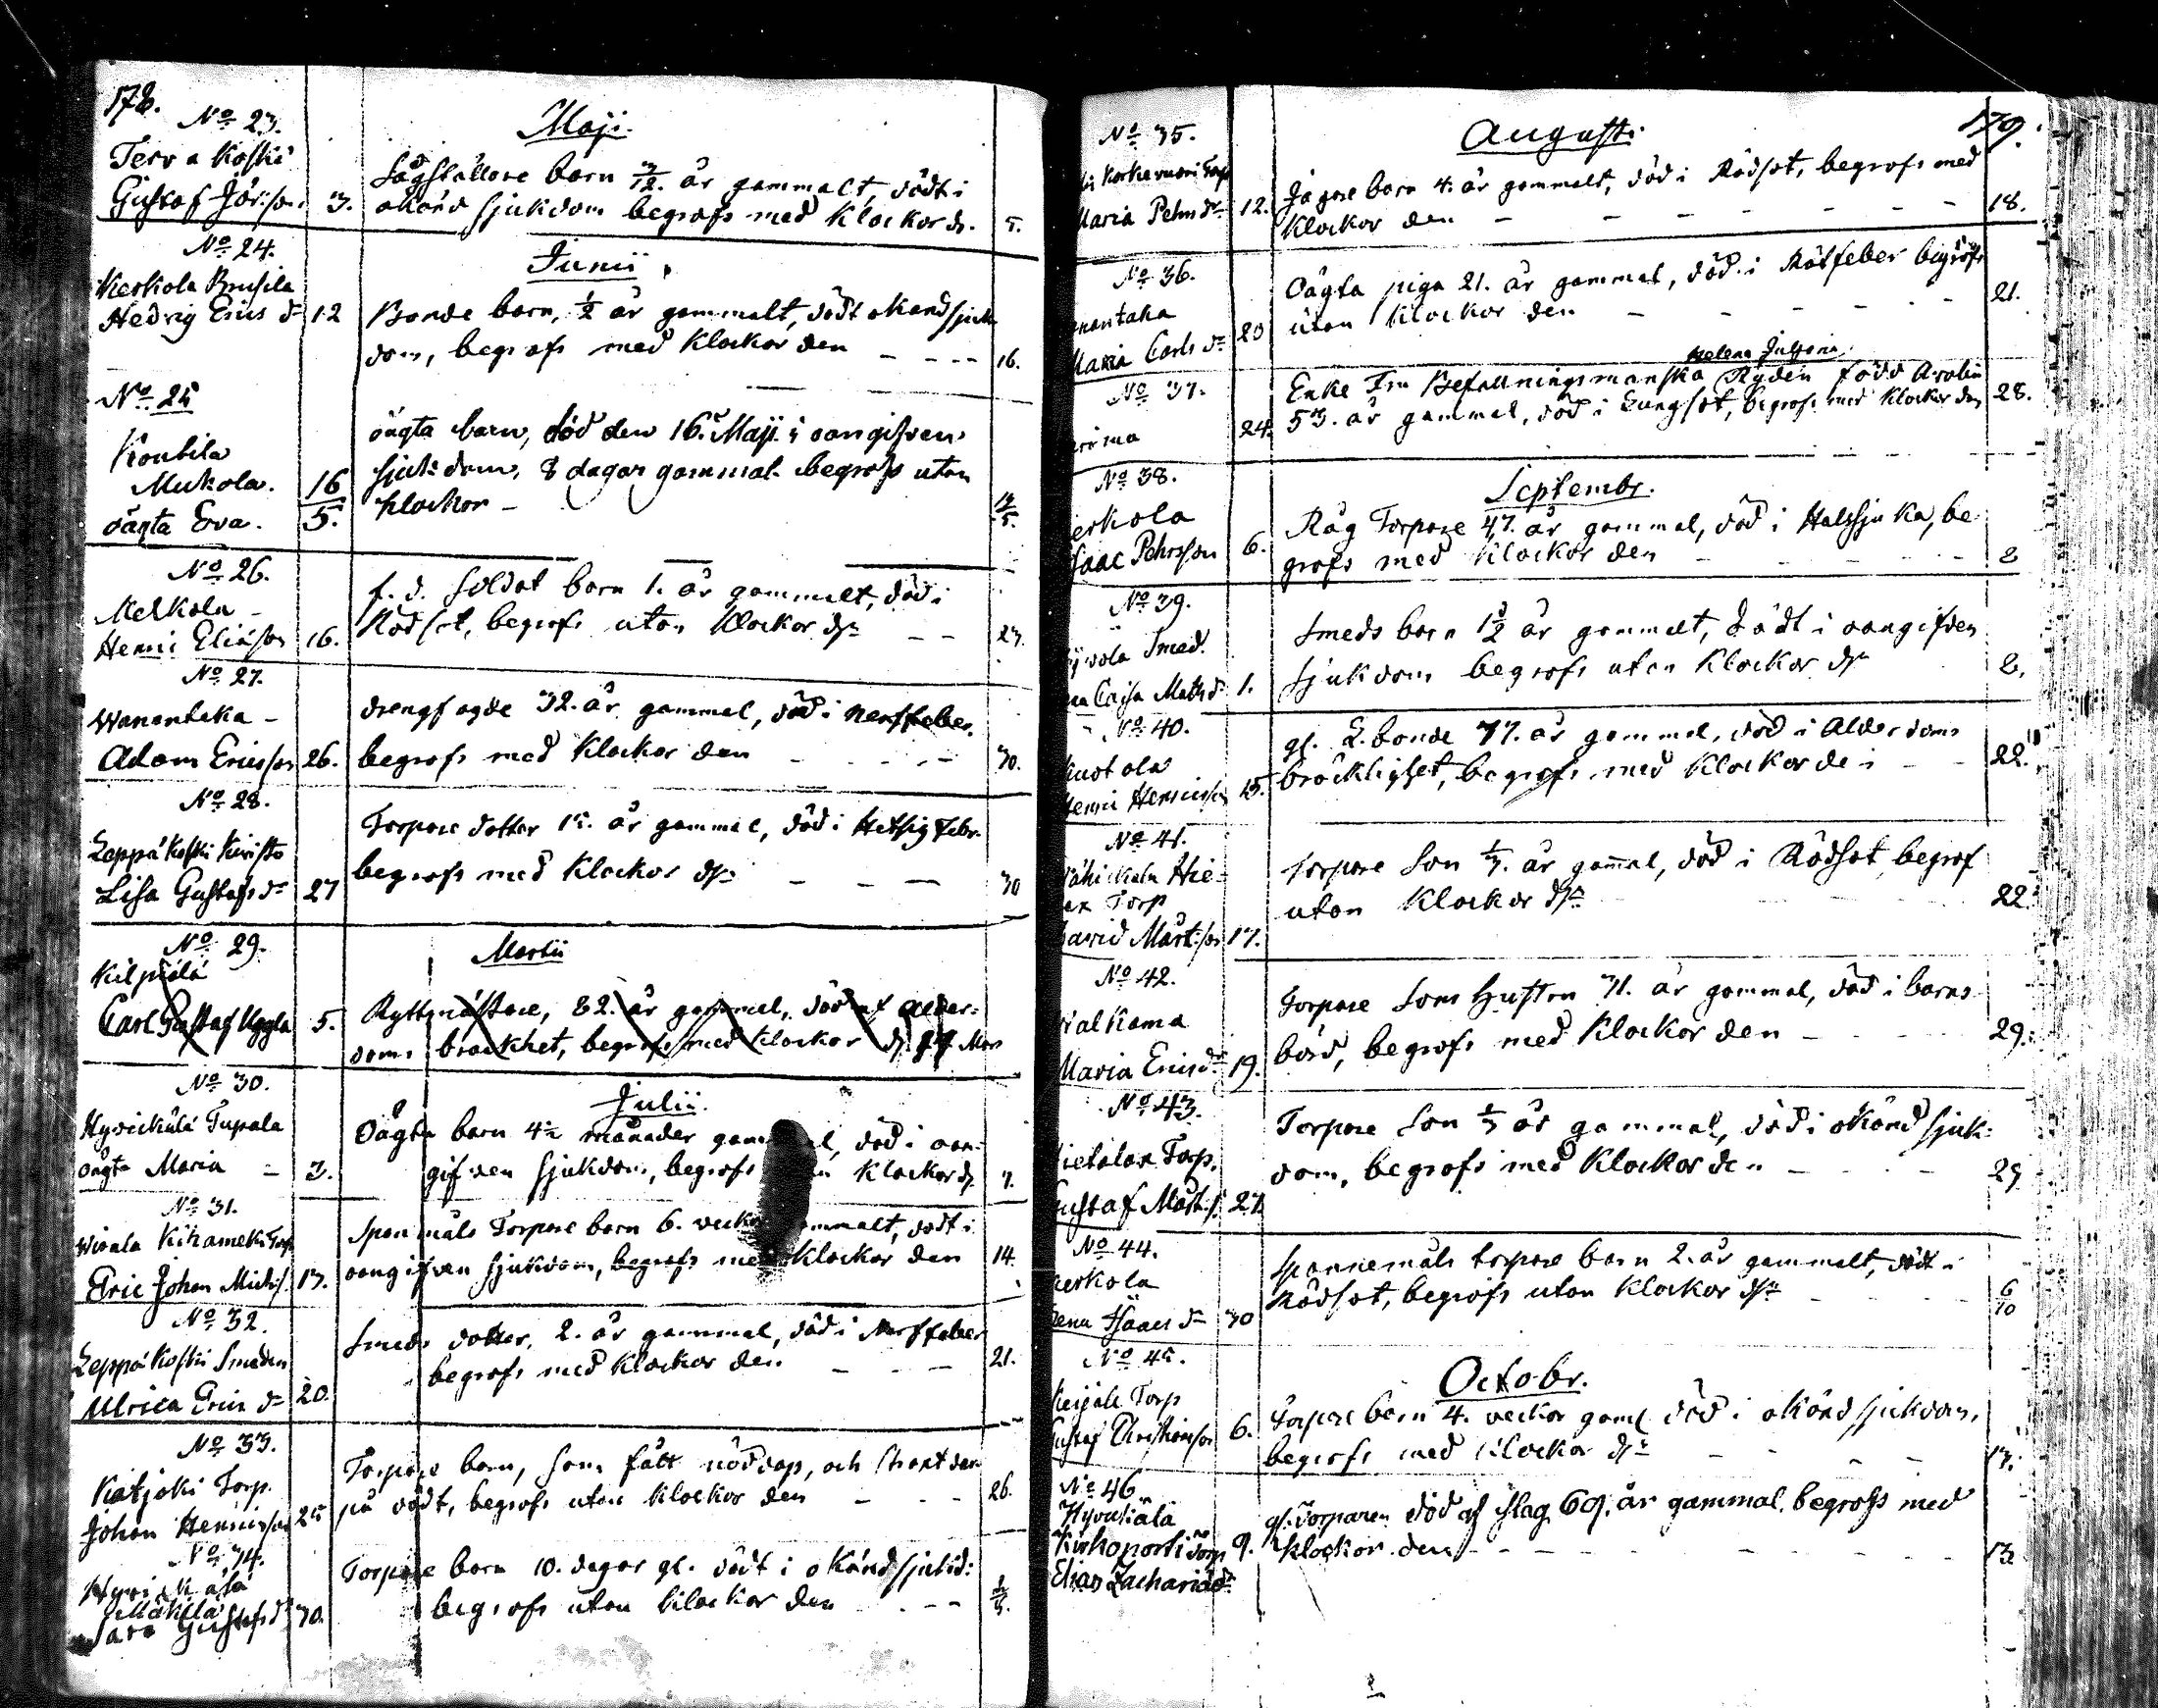 178.
No 23.
Maji.
Terva Koski
Gustaf Jör:son. 3.
Sågställare barn 3/12. år gammalt, dödt i
okänd sjukdom begrofs med Klockor d. 5.
No 24.
Junii
Kerkola Prusila
Hedvig Erics dr 12
Bonde barn, 1/2 år gammalt, dödt okänd sjuk
dom, begrofs med Klockor den - - - - 16.
No 25
Kontila
Mukola.
oägta Eva. 16/5.
oägta barn, död den 16. Maji i oangifven
sjukdom, 8 dagar gammal begrofs utan
klockor -
No 26.
Merkola -
Henric Eliasson 16.
f. d. Soldat barn 1. år gammalt, död i
Rödsot, begrofs utan Klockor dn - - 23.
No 27.
Wanantaka -
Adam Ericsson 26.
drengfogde 32. år gammal, död i Nerffeber.
begrofs med Klockor den - - - - - 30.
No 28.
Leppäkoski Kuisto
Lisa Gustafs dr 27
Torpare dotter 15. år gammal, död i Hetsig Feber.
begrofs med Klockor dn - - - 30
No 29.
Martii
Kilpiälä
Carl Gustaf Uggla 5.
Ryttmästare, 82. år gammal, död af Alder=
doms bräckhet, begrofs med klockor d. Mars
No 30.
Julii.
Hyvickälä Tupala
oägta Maria - 3.
Oägta barn 4 1/2 månader gammal, död i oan=
gifven sjukdom, begrofs Klockor d. 7.
No 31.
Wirala Kihameki Torp
Eric Johan Michs. 13.
Spanmåls Torpare barn 6. veckor gammalt, dödt i
oangifven sjukdom, begrofs med Klockor den 14.
No 32.
Leppäkoski Smeden
Ulrica Erics dr 20.
Smeds dotter, 2. år gammal, död i Nerffeber
begrofs med Klockor den - - - 21.
No 33.
Katjoki Torp.
Johan Henricsson 25
Torpare barn, som fått nöddop, och strax der
på dödt, begrofs utan Klockor den - - - 26.
No 34.
Hyvickälä
Mäkilä
Sara Gustafs dr 30.
Torpare barn 10. dagar gl. dödt i okänd sjukd:
begrofs utan klockor den - - -
179.
No 35.
Augusti.
Korkiavuori Torp
Maria Pehrs dr 12.
Jägare barn 4. år gammalt, död i Rödsot, begrofs med
Klockor den - - - - - - - 18.
No 36.
nantaka
Maria Carls dr 20
Oägta piga 21. år gammal, död i Rötfeber begrofs
utan Klockor den - - - - - 21.
No 37.
24.
Helena Juliana
Enke Fru Befallningsmanska Ryden född Arolin
53. år gammal, död i Lungsot, begrofs med Klockor den 28.
No 38.
Septembr.
erkola
Isaac Pehrsson 6.
Råg Torpare 47. år gammal, död i Halssjuka, be=
grofs med Klockor den - - - - 8
No 39.
Smed.
Caisa Mats dr 1.
Smeds barn 1 1/2 år gammalt, dödt i oangifven
sjukdom begrofs utan Klockor dn 8.
No 40.
Kuotola
Henric Henricsson 15.
gl. L. bonde 77. år gammal, död i Alderdoms
bräcklighet, begrofs med Klockor de: - - 22.
No 41.
Hie=
Torp
David Mårt:son 17.
Torpare Son 1/3. år gammal, död i Rödsot begrof
utan Klockor dn 22.
No 42.
Walkama
Maria Erics dr 19.
Torpare Sons Hustru 31. år gammal, död i barns=
börd, begrofs med Klockor den - - - 29.
No 43.
ietalan Torp.
Gustaf Mårt.s. 27.
Torpare Son 1/3 år gammal, död i okänd sjuk=
dom, begrofs med Klockor den - - - 29
No 44.
erkola
Lena Isaacs dr 30
Spannemåls torpare barn 2. år gammalt, dödt i
Rödsot, begrofs utan Klockor dn - - - 6/10
No 45.
Octobr.
Keijala Torp
Gustaf Christianson 6.
Torpare barn 4. veckor gaml. död i okänd sjukdom,
begrofs med klockor dn - - - - 13.
No 46
Hyvickälä
Kirkoportti torp 9.
Elias Zachariäs
gl. Torparen död af slag 69. år gammal. begrofs med
klockor den - - - - - - - 13.